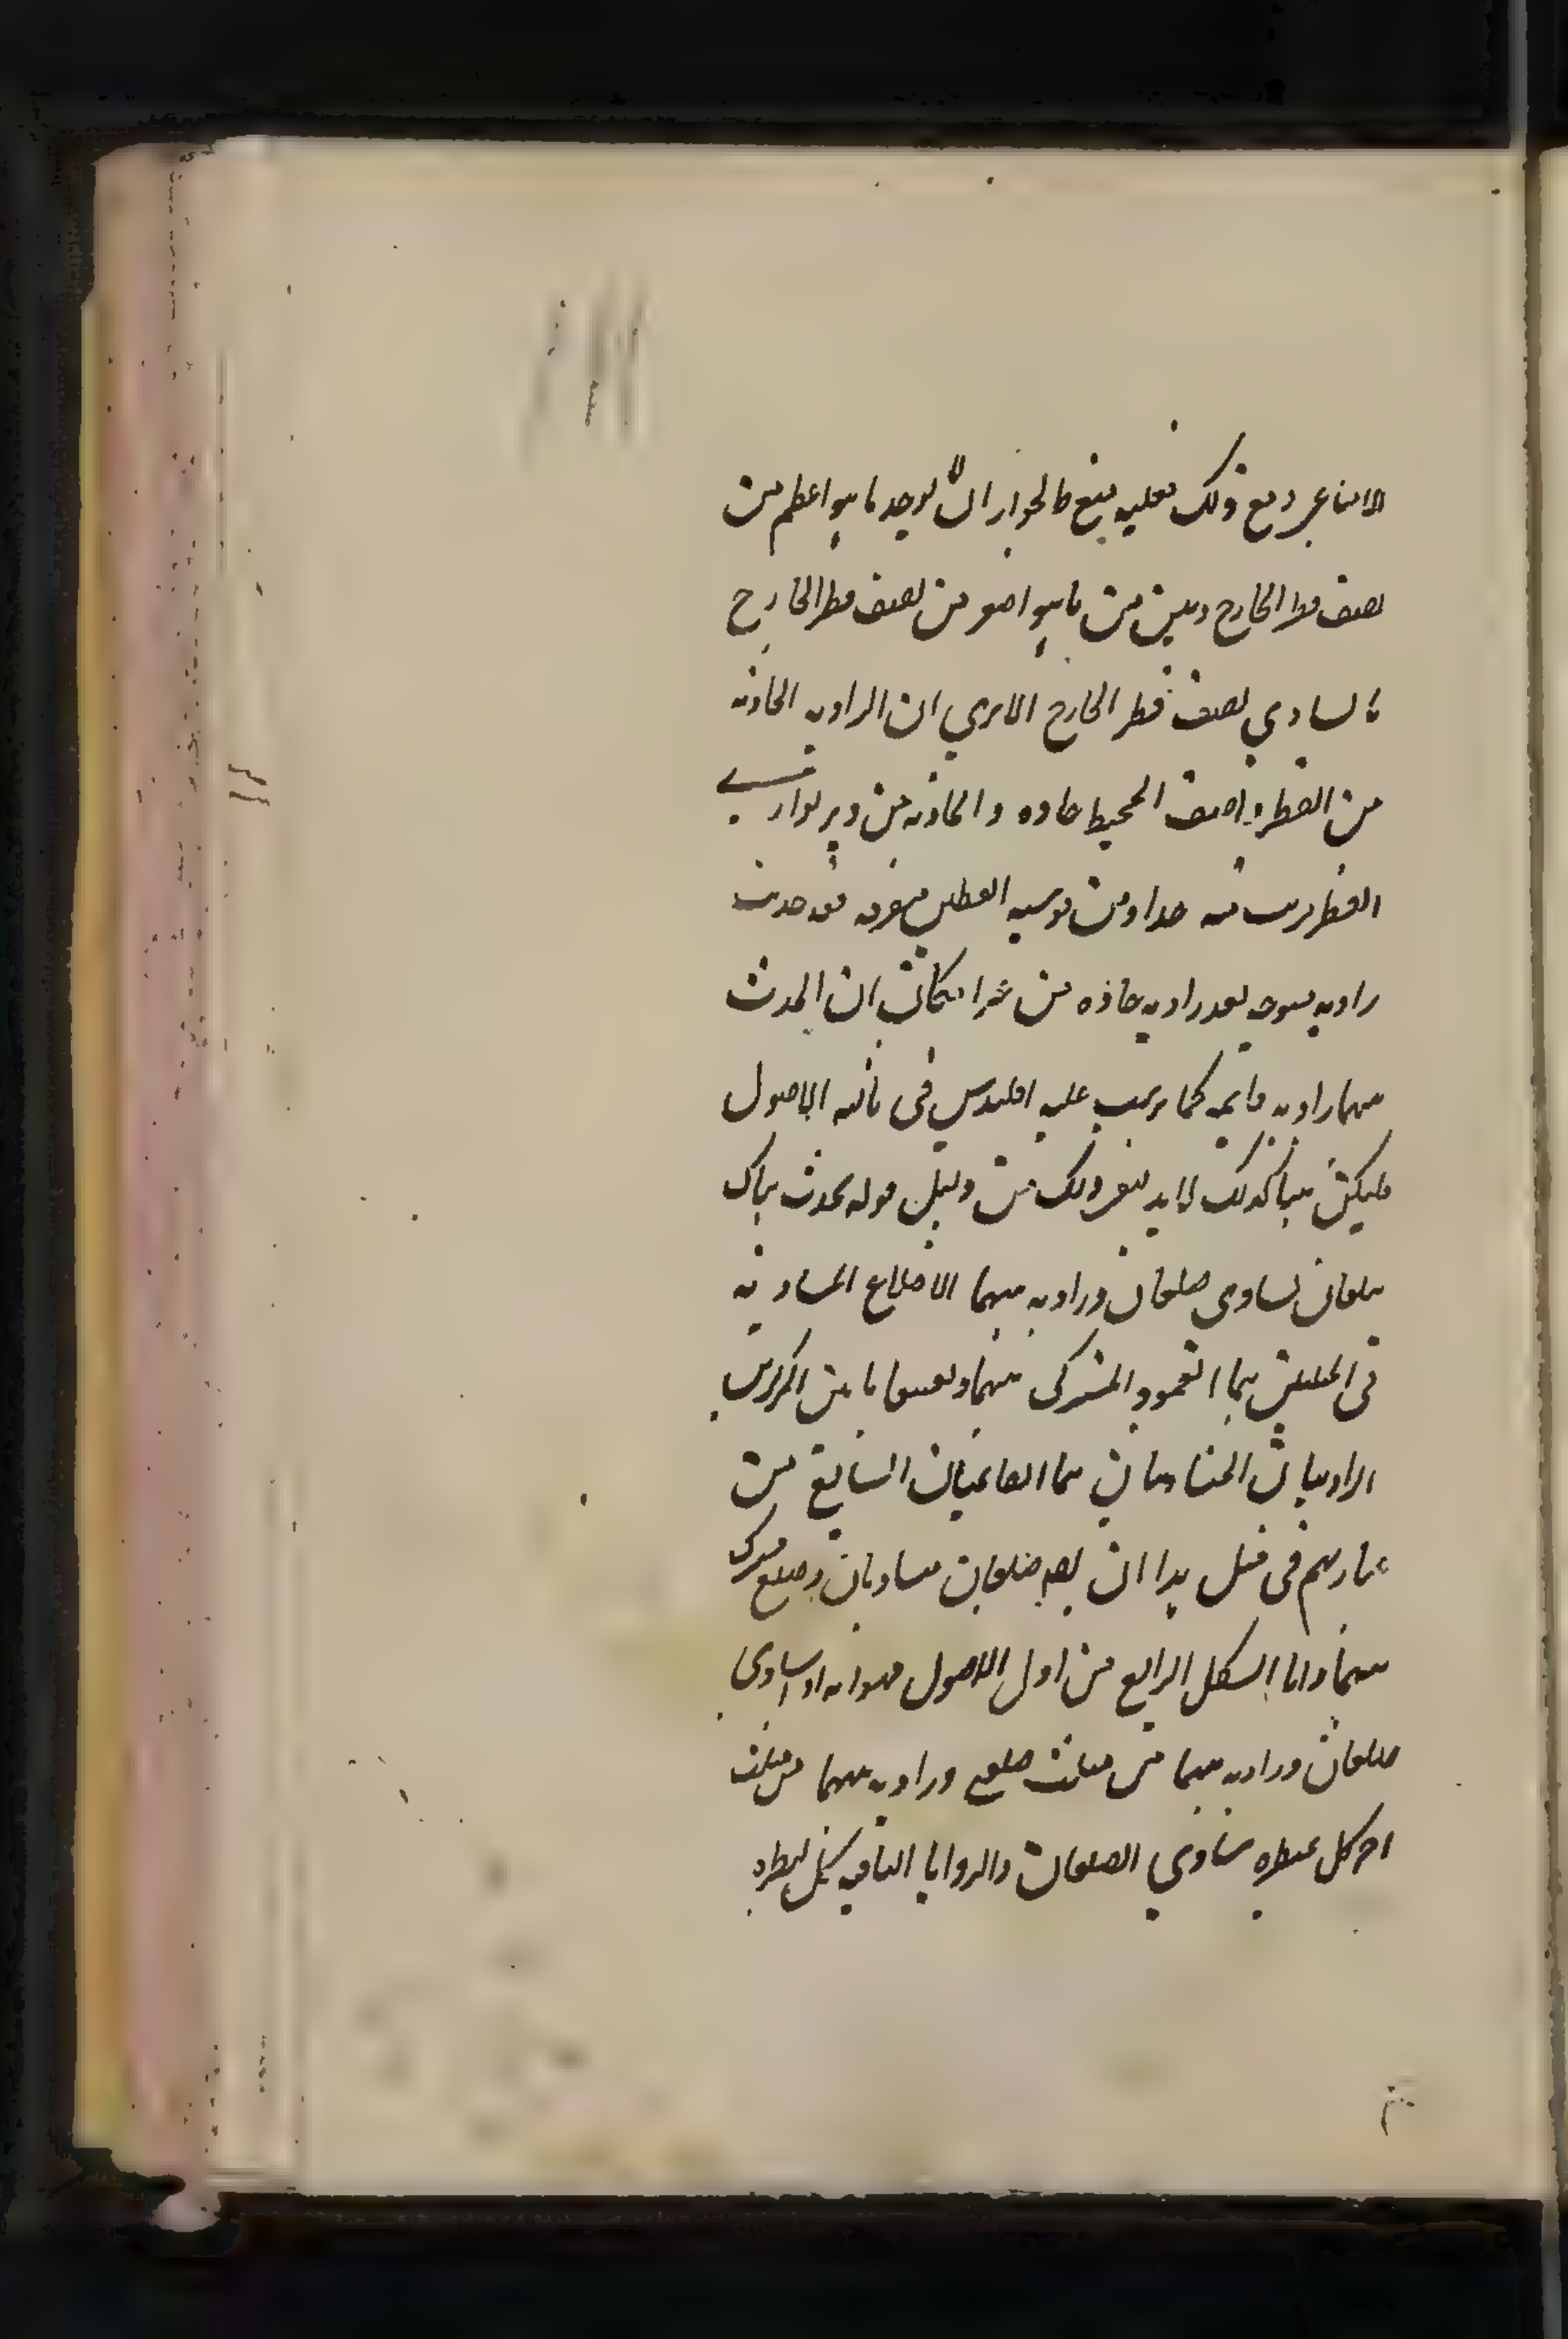 الامتناع ومع ذلك فعليه منع كالجواز ان لا يوجد ما هو اعظم من
نصف قطر الخارج وبين من ما هو اصغر من نصف قطر الخارج
ما يساوي نصف قطر الخارج الا يرى ان الزاوية الحادثة
من القطر ونصف المحيط حادة والحادثة من وتر يوازي
القطر قريب منه جدا ومن قوسيه العظمى منفرجة فقد حدث
زاوية منفرجة بعد زاوية حادة من غير امكان ان يحدث
بينهما زاوية قائمة كما برهن عليه اقليدس في ثالثة الاصول
فليكن هنا كذلك لا بد لنفي ذلك من دليل قوله يحدث هناك
مثلثان يساوي ضلعان وزاوية بينهما الاضلاع المساوية
في المثلثين هما العمود المشترك بينهما ونصفا ما بين المركزين
الزاويتان المتساويتان هما القائمتان الشايع من
عبارتهم في مثل هذا ان يقال ضلعان متساويان وضلع مشترك
بينهما واما الشكل الرابع من اول الاصول فهو انه اذا ساوى
ضلعان وزاوية بينهما من مثلث ضلعي وزاوية بينهما من مثلث
اخر كل نظيره تساوي الضلعان والزوايا الباقية كل لنظيره